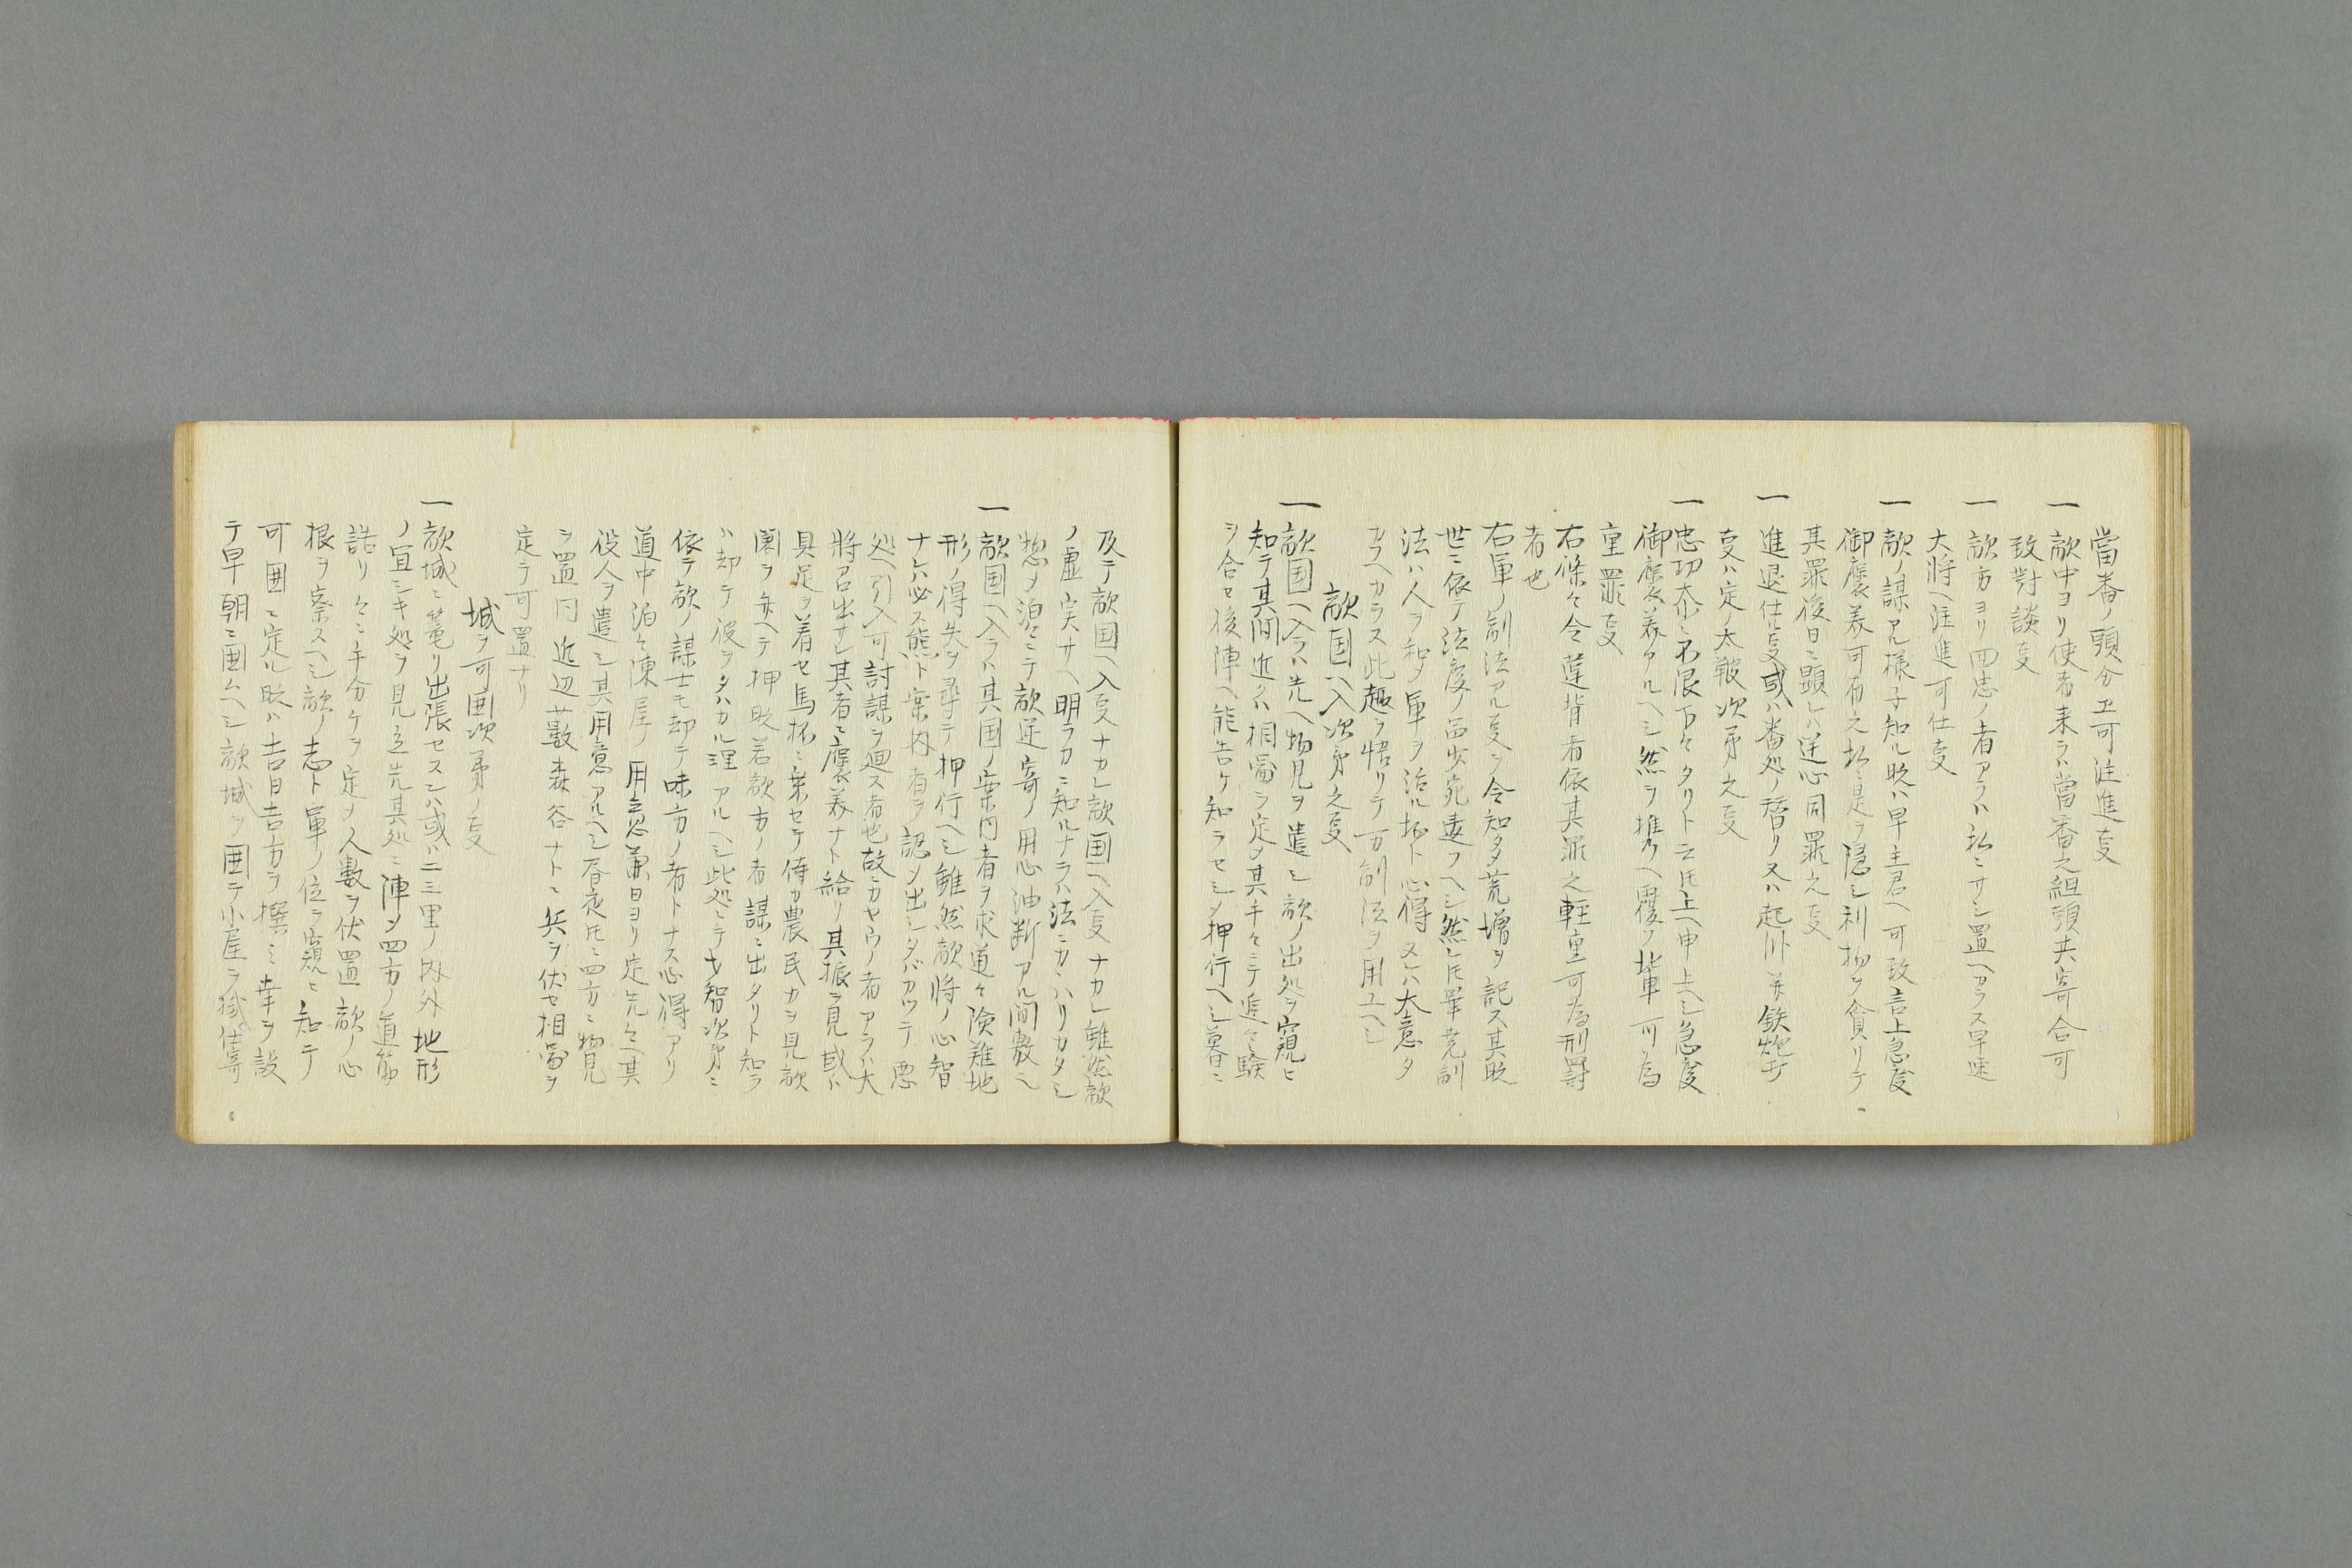 當番ノ頭分エ可注進㕝
一敵中ヨリ使者来ラハ當番之組頭共寄合可
致對談㕝
一敵方ヨリ回忠ノ者アラハ私ニサシ置ヘカラス早速
大將ヘ注進可仕㕝
一敵ノ謀アル様子知ル時ハ早主君ヘ可致言上急度
御褒美可有之私ニ是ヲ隠シ利物ヲ貪リテ
其罪後日ニ顕レハ逆心同罪之㕝
一進退仕㕝或ハ番処ノ替リ又ハ起臥并鉄炮打
㕝ハ定ノ太鞁次第之㕝
一忠功亦ニ不限下々タリト云𪜈上ヘ申上ヘシ急度
御褒美アルヘシ然ヲ推ヘ覆フ輩可為
重罪㕝
右條々令違背者依其罪之軽重可為刑罸
者也
右軍ノ制法アル㕝ヲ令知タ荒増ヲ記ス其時
世ニ依テ法度ノ品少宛違フヘシ然レ𪜈畢竟制
法ハ人ヲ和メ軍ヲ治ル物ト心得ヌレハ大意タ
カフヘカラス此趣ヲ悟リテ万制法ヲ用ユヘシ
敵国ヘ入次第之㕝
一敵国ヘ入ラハ先ヘ物見ヲ遣シ敵ノ出処ヲ窺ヒ
知テ其間近クハ相圖ヲ定メ其手々ニテ進々験
ヲ合セ後陣ヘ能告ケ知ラセシメ押行ヘシ暮ニ
及テ敵国ヘ入㕝ナカレ敵国ヘ入㕝ナカレ雖然敵
ノ虚実サヘ明ラカニ知ルナラハ法ニカヽハリカタシ
惣ヲ泊々ニテ敵逆寄ノ用心油断アル間敷㕝
一敵国ヘ入ラハ其国ノ案内者ヲ求道々険難地
形ノ得失ヲ尋テ押行ヘシ雖然敵将ノ心智
ナレハ必ス態ト案内者ヲ認メ出シタバカツテ悪
処ヘ引入可討謀ヲ廻ス者也故ニカヤウノ者アラハ大
將召出サレ其者ニ褒美ナト給リ其振ヲ見或ハ
具足ヲ着セ馬抔ニ乗セテ侍カ農民カヲ見敵
国ヲ弁ヘテ押時若敵方ノ者謀ニ出タリト知ラ
ハ却テ彼ヲタハカル理アルヘシ此処ニテ才智次第ニ
依テ敵ノ謀士モ却テ味方ノ者トナス心得アリ
道中泊々陳屋ノ用意兼日ヨリ定先々ヘ其
役人ヲ遣シ其用意アルヘシ昼夜𪜈ニ四方ニ物見
ヲ置内近辺ノ薮森谷ナトニ兵ヲ伏セ相圖ヲ
定テ可置ナリ
城ヲ可囲次第ノ㕝
一敵城ニ篭リ出張セスンハ或ハ二三里ノ内外地形
ノ宜シキ処ヲ見立先其処ニ陣メ四方ノ道筋
詰リ々ニ手分ケヲ定メ人數ヲ伏置敵ノ心
根ヲ察スヘシ敵ノ志ト軍ノ位ヲ窺ヒ知テ
可囲ニ定ル時ハ吉日吉方ヲ撰ミ幸ヲ設
テ早朝ニ囲ムヘシ敵城ヲ囲テ小屋ヲ掛仕寄